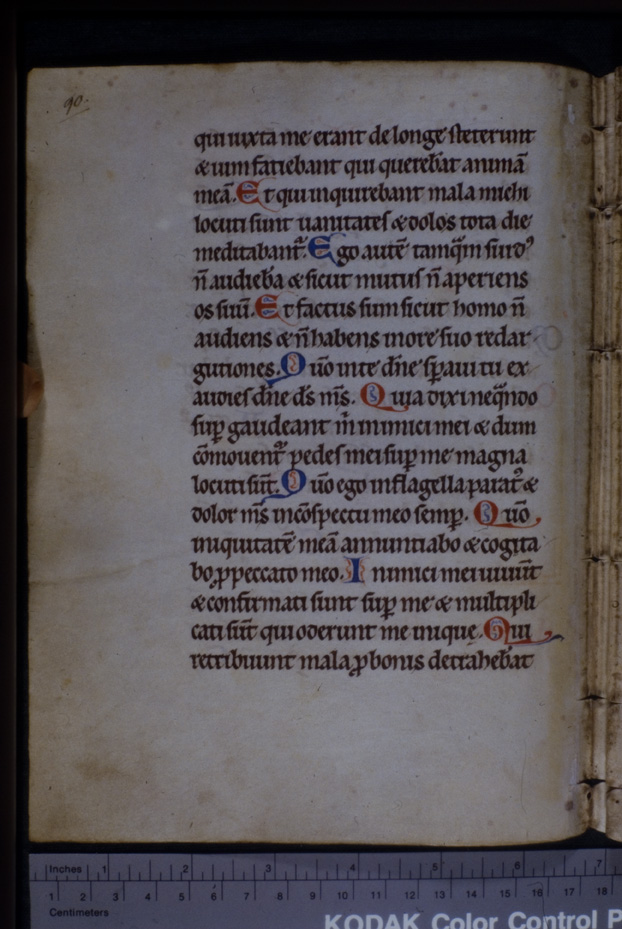 90.
qui iuxta me erant de longe steterunt
& uim fatiebant qui quereba̅t animã
meã. Et qui inquirebant mala michi
locuti sunt uanitates & dolos tota die
meditabant᷑. Ego aute̅ tamq̃m surdꝰ
n̅ audieba̅ & sicut mutus n̅ aperiens
os suu̅. Et factus sum sicut homo n̅
audiens & n̅ habens in ore suo redar
gutiones. Qm̅o in te dn̅e sp̅aui tu ex
audies dn̅e ds̅ ms̅. Quia dixi neq̃ndo
sup̲ gaudeant m̅ inimici mei & dum
co̅mouent᷑ pedes mei sup̲ me magna
locuti su̅t. Qm̅o ego in flagella paratꝰ &
dolor ms̅ in co̅spectu meo semp̲. Qm̅o
iniquitate̅ meã annuntiabo & cogita
bo ꝓ peccato meo. Inimici mei uiuu̅t
& confirmati sunt sup̲ me & multipli
cati su̅t qui oderunt me inique. Qui
retribuunt mala ꝓ bonis detraheba̅t
Inches 1 2 3 4 5 6 7
1 2 3 4 5 6 7 8 9 10 11 12 13 14 15 16 17 18
Centimeters
KODAK Color Control P